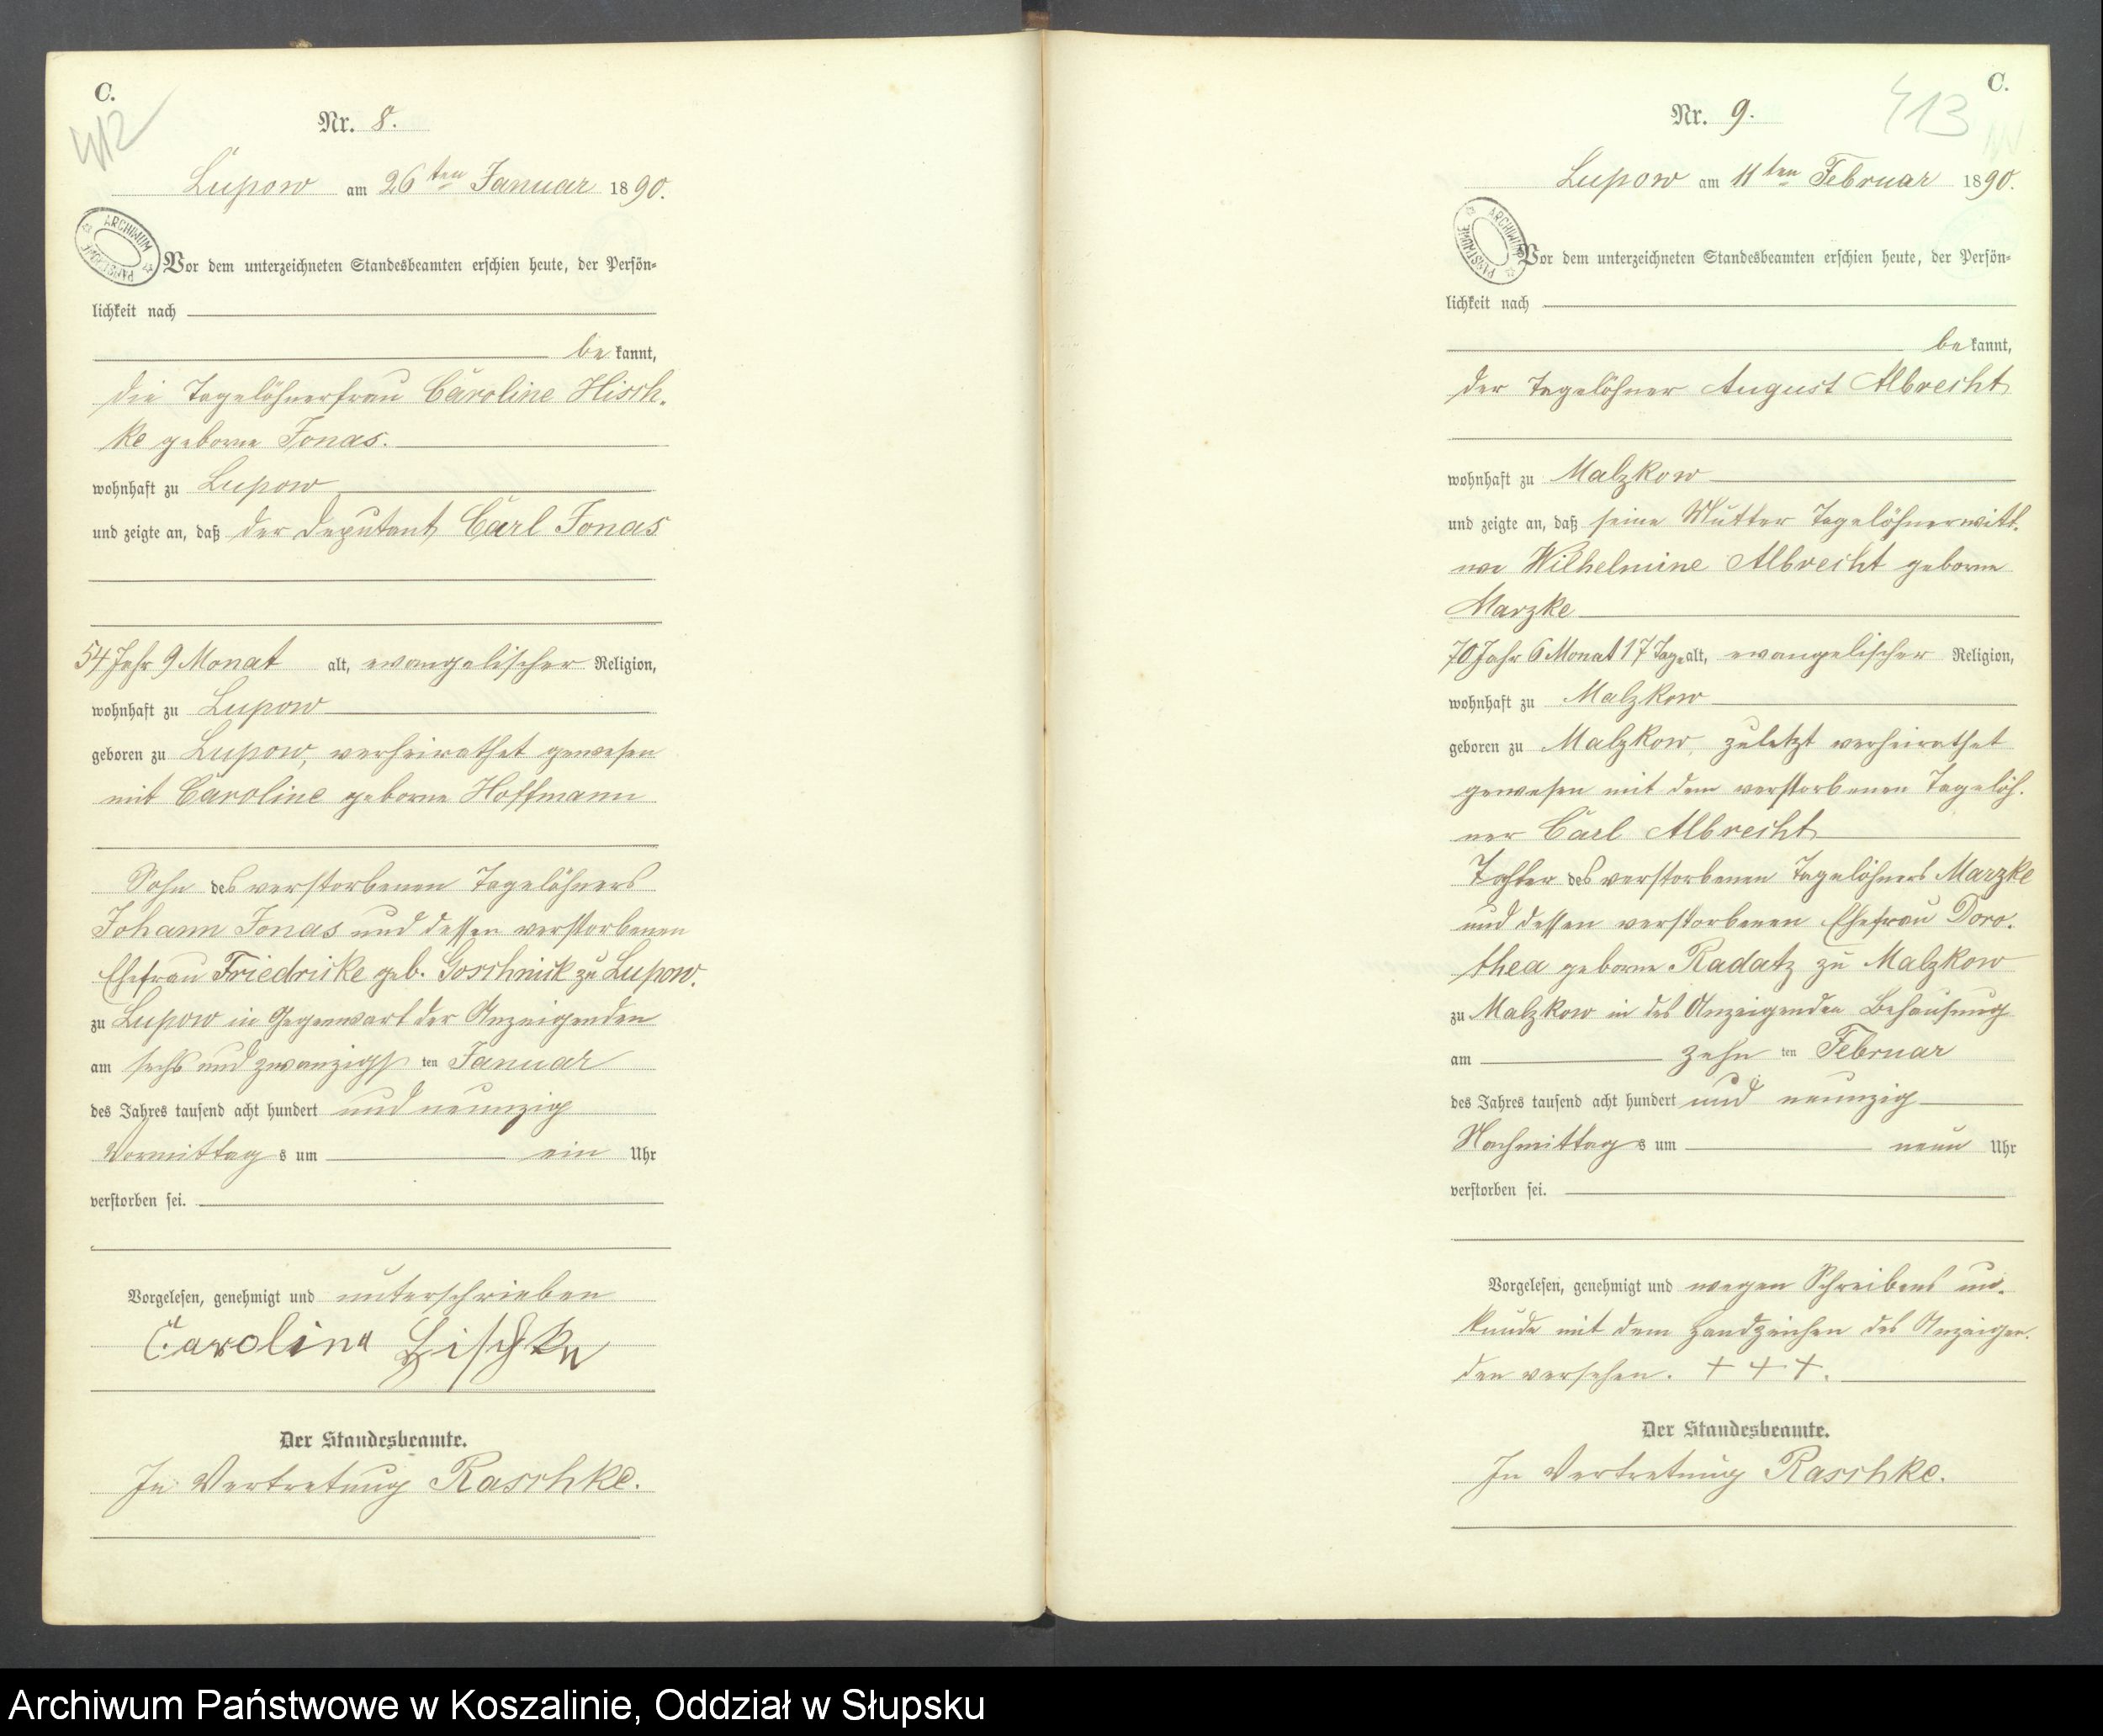 C.
412
Nr. 8.
Lupow am 26ten Januar 1890.
ARCHIWUM PAŃSTWOWE
Vor dem unterzeichneten Standesbeamten erschien heute, der Persön-
lichkeit nach
be kannt,
die Tagelöhnerfrau Caroline Hisch-
ke geborne Jonas.
wohnhaft zu Lupow
und zeigte an, daß der Deputant Carl Jonas
54 Jahr 9 Monat alt, evangelischer Religion,
wohnhaft zu Lupow
geboren zu Lupow, verheirathet gewesen
mit Caroline geborne Hoffmann
Sohn des verstorbenen Tagelöhners
Johann Jonas und dessen verstorbenen
Ehefrau Friedricke geb. Goschnick zu Lupow.
zu Lupow in Gegenwart der Anzeigenden
am sechs und zwanzigs ten Januar
des Jahres tausend acht hundert und neunzig
Vormittag s um ein Uhr
verstorben sei.
Vorgelesen, genehmigt und unterschrieben
Caroline Hischke
Der Standesbeamte.
In Vertretung Raschke.
C.
413
Nr. 9.
Lupow am 11ten Februar 1890.
ARCHIWUM PAŃSTWOWE
Vor dem unterzeichneten Standesbeamten erschien heute, der Persön-
lichkeit nach
be kannt,
der Tagelöhner August Albrecht
wohnhaft zu Malzkow
und zeigte an, daß seine Mutter Tagelöhnerwitt-
we Wilhelmine Albrecht geborne
Marzke
70 Jahr 6 Monat 17 Tage alt, evangelischer Religion,
wohnhaft zu Malzkow
geboren zu Malzkow, zuletzt verheirathet
gewesen mit dem verstorbenen Tagelöh-
ner Carl Albrecht
Tochter des verstorbenen Tagelöhners Marzke
und dessen verstorbenen Ehefrau Doro-
thea geborne Radatz zu Malzkow
zu Malzkow in des Anzeigenden Behausung
am zehn ten Februar
des Jahres tausend acht hundert und neunzig
Nachmittag s um neun Uhr
verstorben sei.
Vorgelesen, genehmigt und wegen Schreibens un-
kunde mit dem Handzeichen des Anzeigen-
den versehen. + + +.
Der Standesbeamte.
In Vertretung Raschke.
Archiwum Państwowe w Koszalinie, Oddział w Słupsku